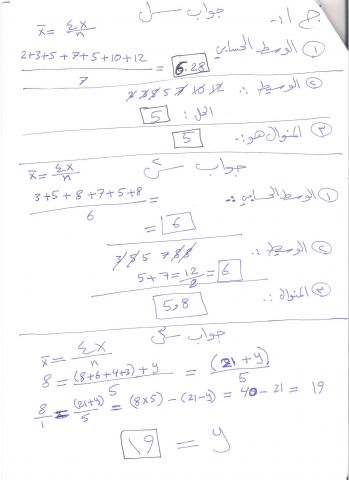 جواب س١
ج ١-
x̄ = Σx/n
① الوسط الحسابي
2+3+5+7+5+10+12 / 7 = 6.28
② الوسيط :.
2 3 5 5 7 10 12
الحل : 5
③ المنوال هو :. 5
جواب س٢
x̄ = Σx/n
① الوسط الحسابي :.
3+5+8+7+5+8 / 6 =
= 6
② الوسيط :.
3 5 5 7 8 8
5+7 = 12/2 = 6
③ المنوال :.
5,8
جواب س٣
x̄ = Σx/n
8 = (8+6+4+3)+y / 5 = (21+y) / 5
8/1 = (21+y)/5 = (8x5) - (21-y) = 40 - 21 = 19
19 = y